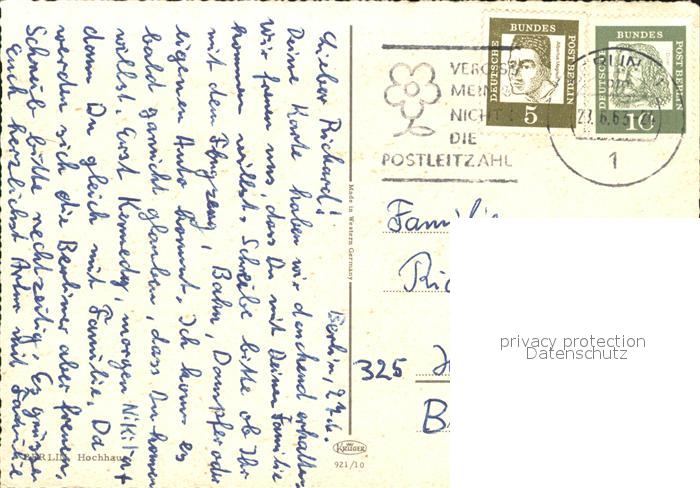 Lieber Richard! Berlin, 27.6.
Deine Karte haben wir dankend erhalten.
Wir freuen uns, dass Du mit Deiner Familie
kommen willst. Schreibe bitte ob Ihr
mit dem Flugzeug, Bahn, Dampfer oder
eigenen Auto kommt. Ich kann es
bald garnicht glauben, dass Du kommen
willst. Erst Kennedy, morgen Nikita
dann Du gleich mit Familie. Da
werden sich die Berliner aber freuen.
Schreib bitte rechtzeitig. Es grüsst
Euch herzlichst Artur mit Familie
BERLIN Hochhaus
Made in Western Germany
KRÜGER
921/10
DEUTSCHE BUNDESPOST BERLIN
5
DEUTSCHE BUNDESPOST BERLIN
10
VERGISS
MEIN
NICHT
DIE
POSTLEITZAHL
27.6.63
1
Familie
325
privacy protection
Datenschutz